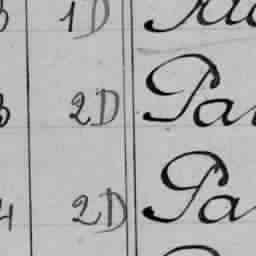 1D
3 2D Pa
4 2D Pa